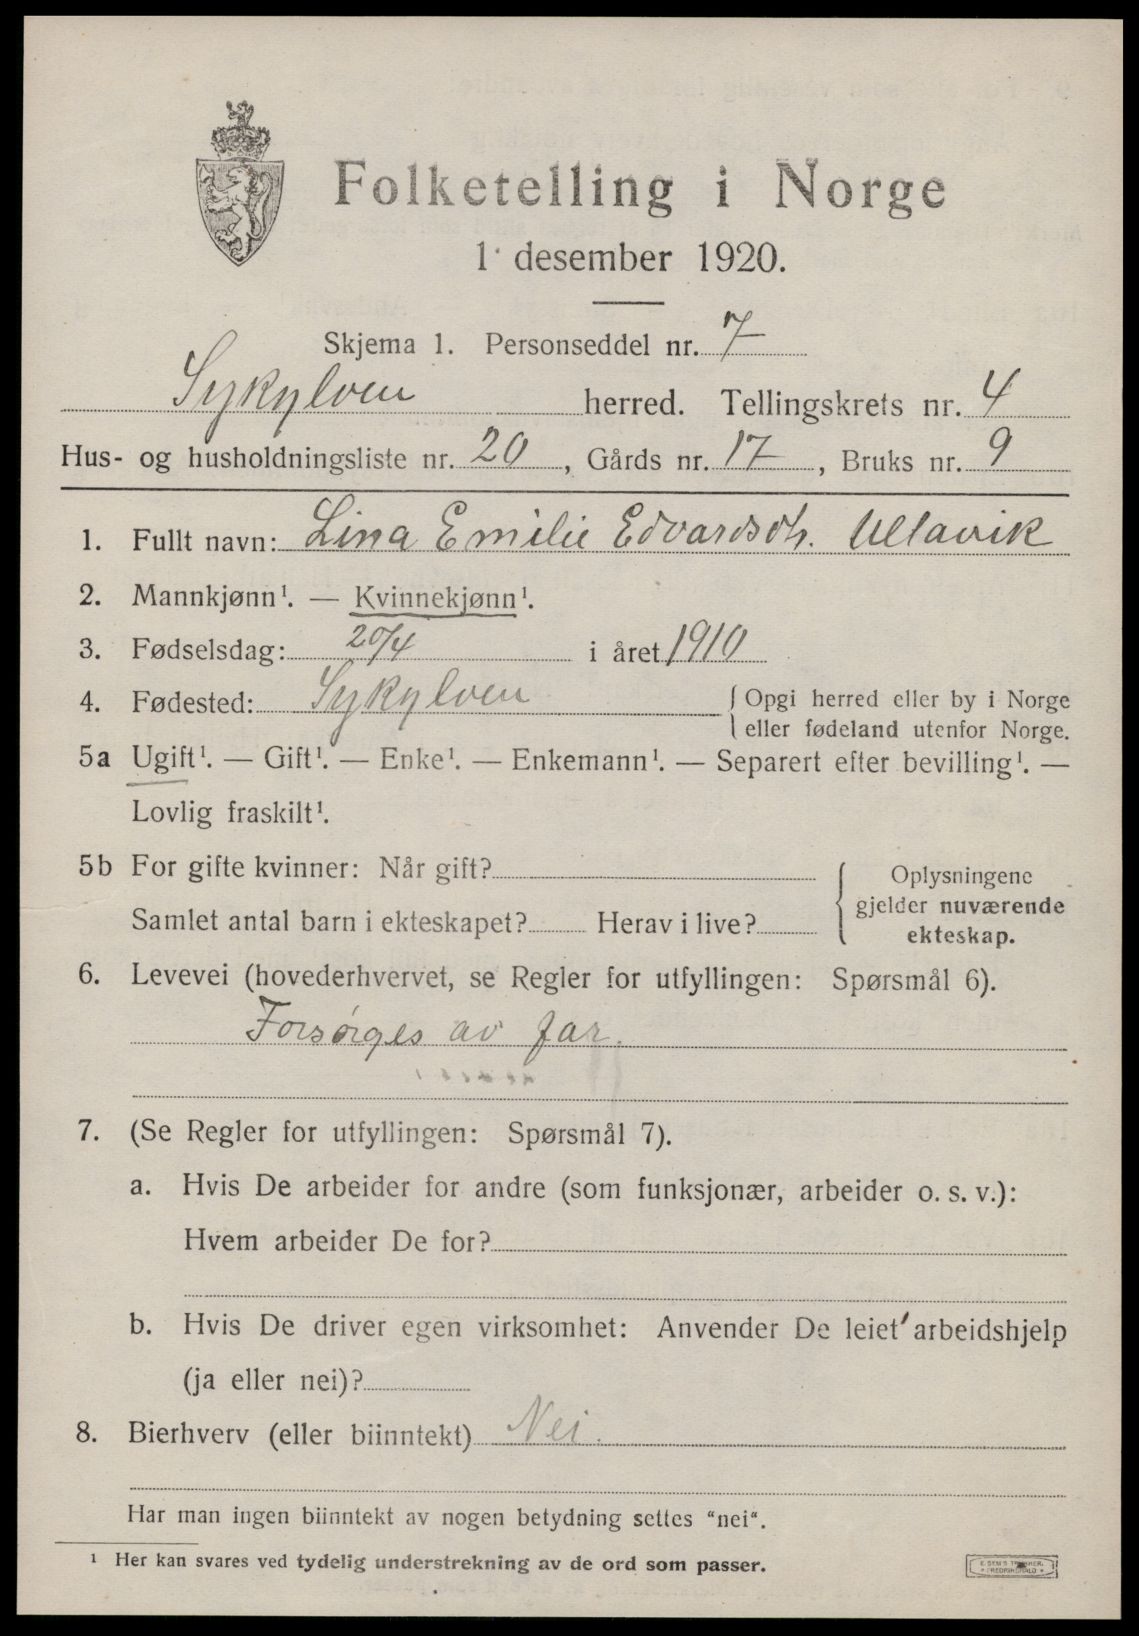 Folketelling i Norge
1. desember 1920.
Skjema 1. Personseddel nr. 7
Sykylven herred. Tellingskrets nr. 4
Hus- og husholdningsliste nr. 20, Gårds nr. 17, Bruks nr. 9
1. Fullt navn: Lina Emilie Edvardsdtr. Ullavik
2. Mannkjønn¹. — Kvinnekjønn¹.
3. Fødselsdag: 20/4 i året 1910
4. Fødested: Sykylven { Opgi herred eller by i Norge
eller fødeland utenfor Norge.
5a Ugift¹. — Gift¹. — Enke¹. — Enkemann¹. — Separert efter bevilling¹. —
Lovlig fraskilt¹.
5b For gifte kvinner: Når gift?
Samlet antal barn i ekteskapet? Herav i live?
{ Oplysningene
gjelder nuværende
ekteskap.
6. Levevei (hovederhvervet, se Regler for utfyllingen: Spørsmål 6).
Forsørges av far.
7. (Se Regler for utfyllingen: Spørsmål 7).
a. Hvis De arbeider for andre (som funksjonær, arbeider o. s. v.):
Hvem arbeider De for?
b. Hvis De driver egen virksomhet: Anvender De leiet arbeidshjelp
(ja eller nei)?
8. Bierhverv (eller biinntekt) Nei.
Har man ingen biinntekt av nogen betydning settes "nei".
¹ Her kan svares ved tydelig understrekning av de ord som passer.